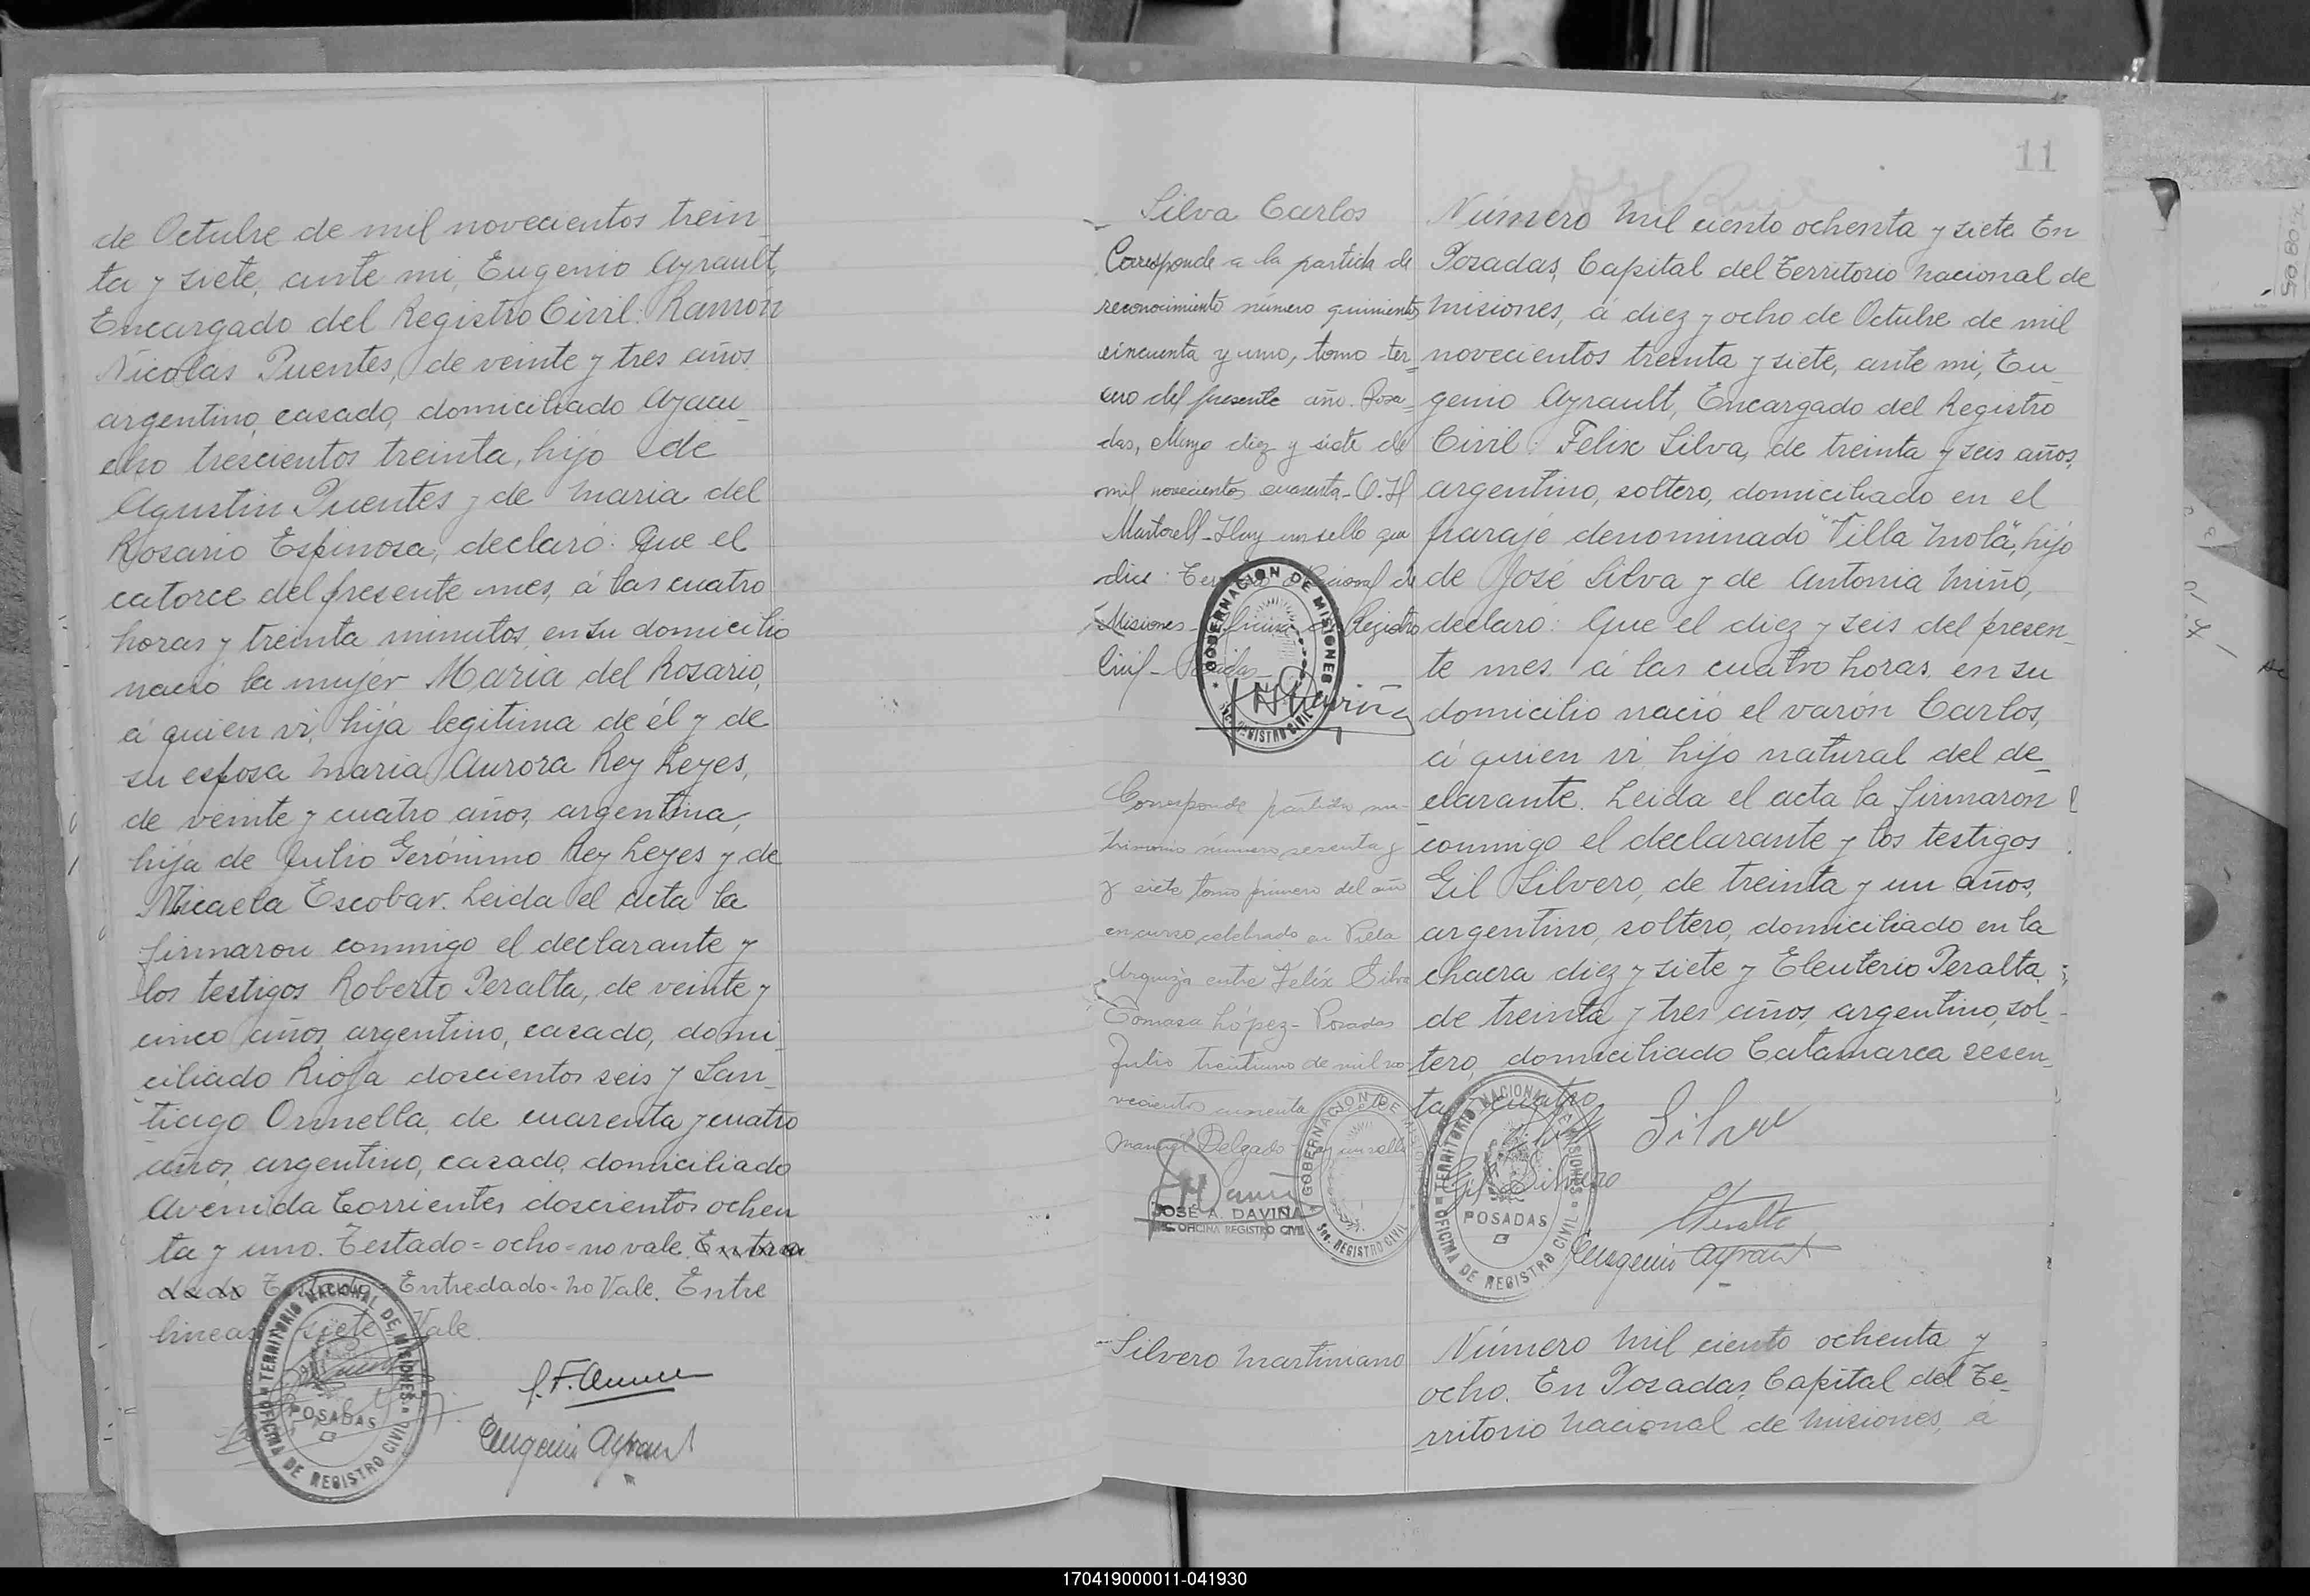 de Octubre de mil novecientos trein
ta y siete, ante mi, Eugenio Ayrault,
Encargado del Registro Civil: Ramón
Nicolas Puentes, de veinte y tres años
argentino, casado, domiciliado Ayacu
cho trescientos treinta, hijo de
Agustin Puentes y de Maria del
Rosario Espinosa, declaró: Que el
catorce del presente mes, á las cuatro
horas y treinta minutos, en su domicilio
nació la mujer Maria del Rosario,
á quien vi, hija legitima de él y de
su esposa Maria Aurora Rey Leyes,
de veinte y cuatro años, argentina,
hija de Julio Gerónimo Rey Leyes y de
Micaela Escobar. Leida el acta la
firmaron conmigo el declarante y
los testigos Roberto Peralta, de veinte y
cinco años, argentino, casado, domi
ciliado Rioja doscientos seis y San
tiago Ormella, de cuarenta y cuatro
años, argentino, casado, domiciliado
Avenida Corrientes doscientos ochen
ta y uno. Testado=ocho=no vale. Entre
dado Testado=Entredado=no Vale. Entre
lineas siete Vale.
TERRITORIO NACIONAL DE MISIONES
POSADAS
OFICINA DE REGISTRO CIVIL
Eugenio Ayrault
11
Silva Carlos
Corresponde a la partida de
reconocimiento número quinientos
cincuenta y uno, tomo ter
cero del presente año. Posa
das, Mayo diez y siete de
mil novecientos cuarenta - O.H
Martorell - Hay un sello que
dice: Territorio Nacional de
Misiones - Oficina de Registro
Civil - Posadas
GOBERNACION DE MISIONES
REGISTRO CIVIL
Corresponde partida ma-
trimonio número sesenta y
y siete, tomo primero del año
en curso celebrado en Villa
Urquiza entre Felix Silva
Tomasa López - Posadas
Julio treintiuno de mil no
vecientos cuarenta
Manuel Delgado Hay un sello
JOSÉ A. DAVIÑA
ENC. OFICINA REGISTRO CIVIL
GOBERNACION DE MISIONES
REGISTRO CIVIL
Número Mil ciento ochenta y siete En
Posadas, Capital del Territorio Nacional de
Misiones, á diez y ocho de Octubre de mil
novecientos treinta y siete, ante mi, Eu
genio Ayrault, Encargado del Registro
Civil: Felix Silva, de treinta y seis años,
argentino, soltero, domiciliado en el
paraje denominado "Villa Mola", hijo
de José Silva y de Antonia Miño,
declaró: Que el diez y seis del presen
te mes á las cuatro horas, en su
domicilio nació el varón Carlos,
á quien vi, hijo natural del de
clarante. Leida el acta la firmaron
conmigo el declarante y los testigos
Gil Silvero, de treinta y un años,
argentino, soltero, domiciliado en la
chacra diez y siete y Eleuterio Peralta,
de treinta y tres años, argentino, sol
tero, domiciliado Catamarca sesen
ta y cuatro
Silva
Gil Silvero
EPeralta
Eugenio Ayrault
TERRITORIO NACIONAL DE MISIONES
POSADAS
OFICINA DE REGISTRO CIVIL
Silvero Martiniano
Número Mil ciento ochenta y
ocho. En Posadas, Capital del Te
rritorio Nacional de Misiones, á
170419000011-041930